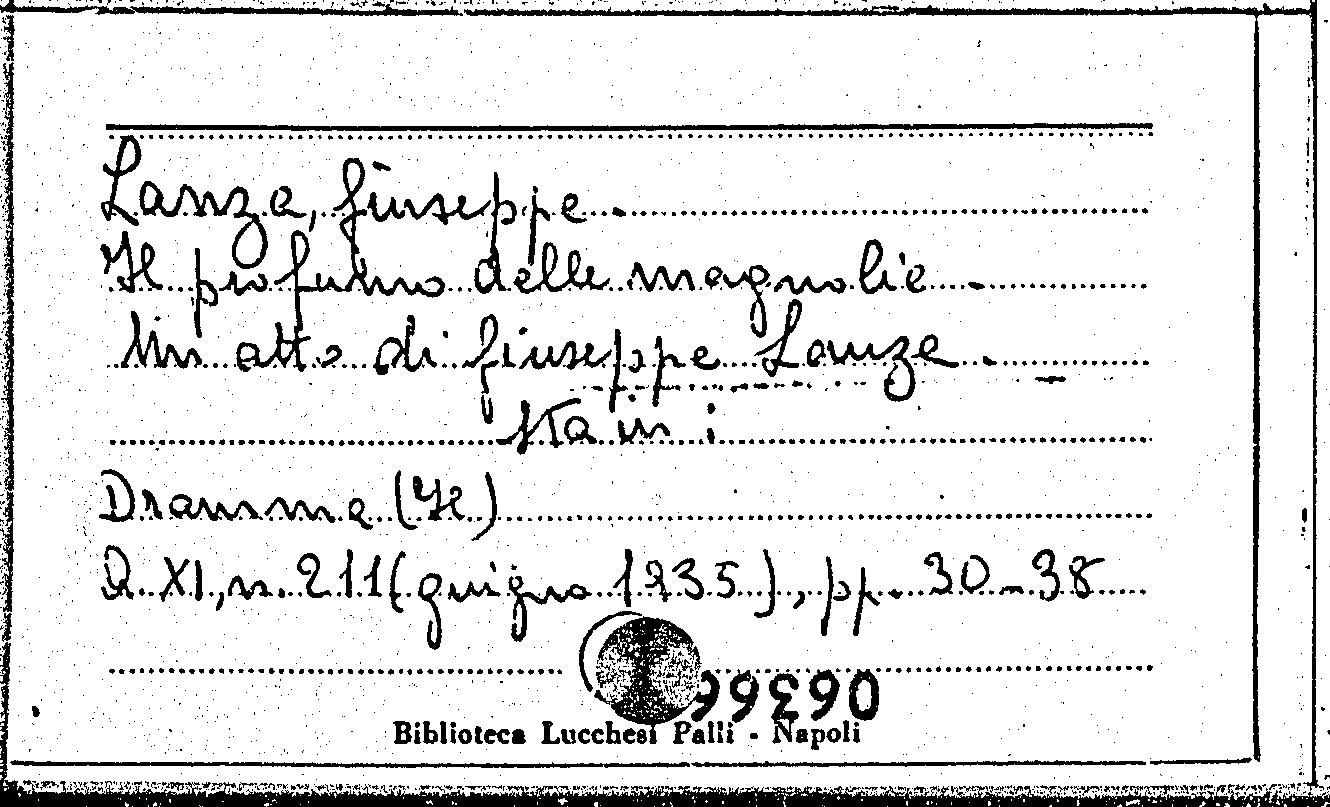 Lanza, Giuseppe.
Il profumo delle magnolie.
Un atto di Giuseppe Lanza. -
Sta in:
Dramma (Il)
A. XI, n. 211 (giugno 1935), pp. 30-38
Biblioteca Lucchesi Palli - Napoli